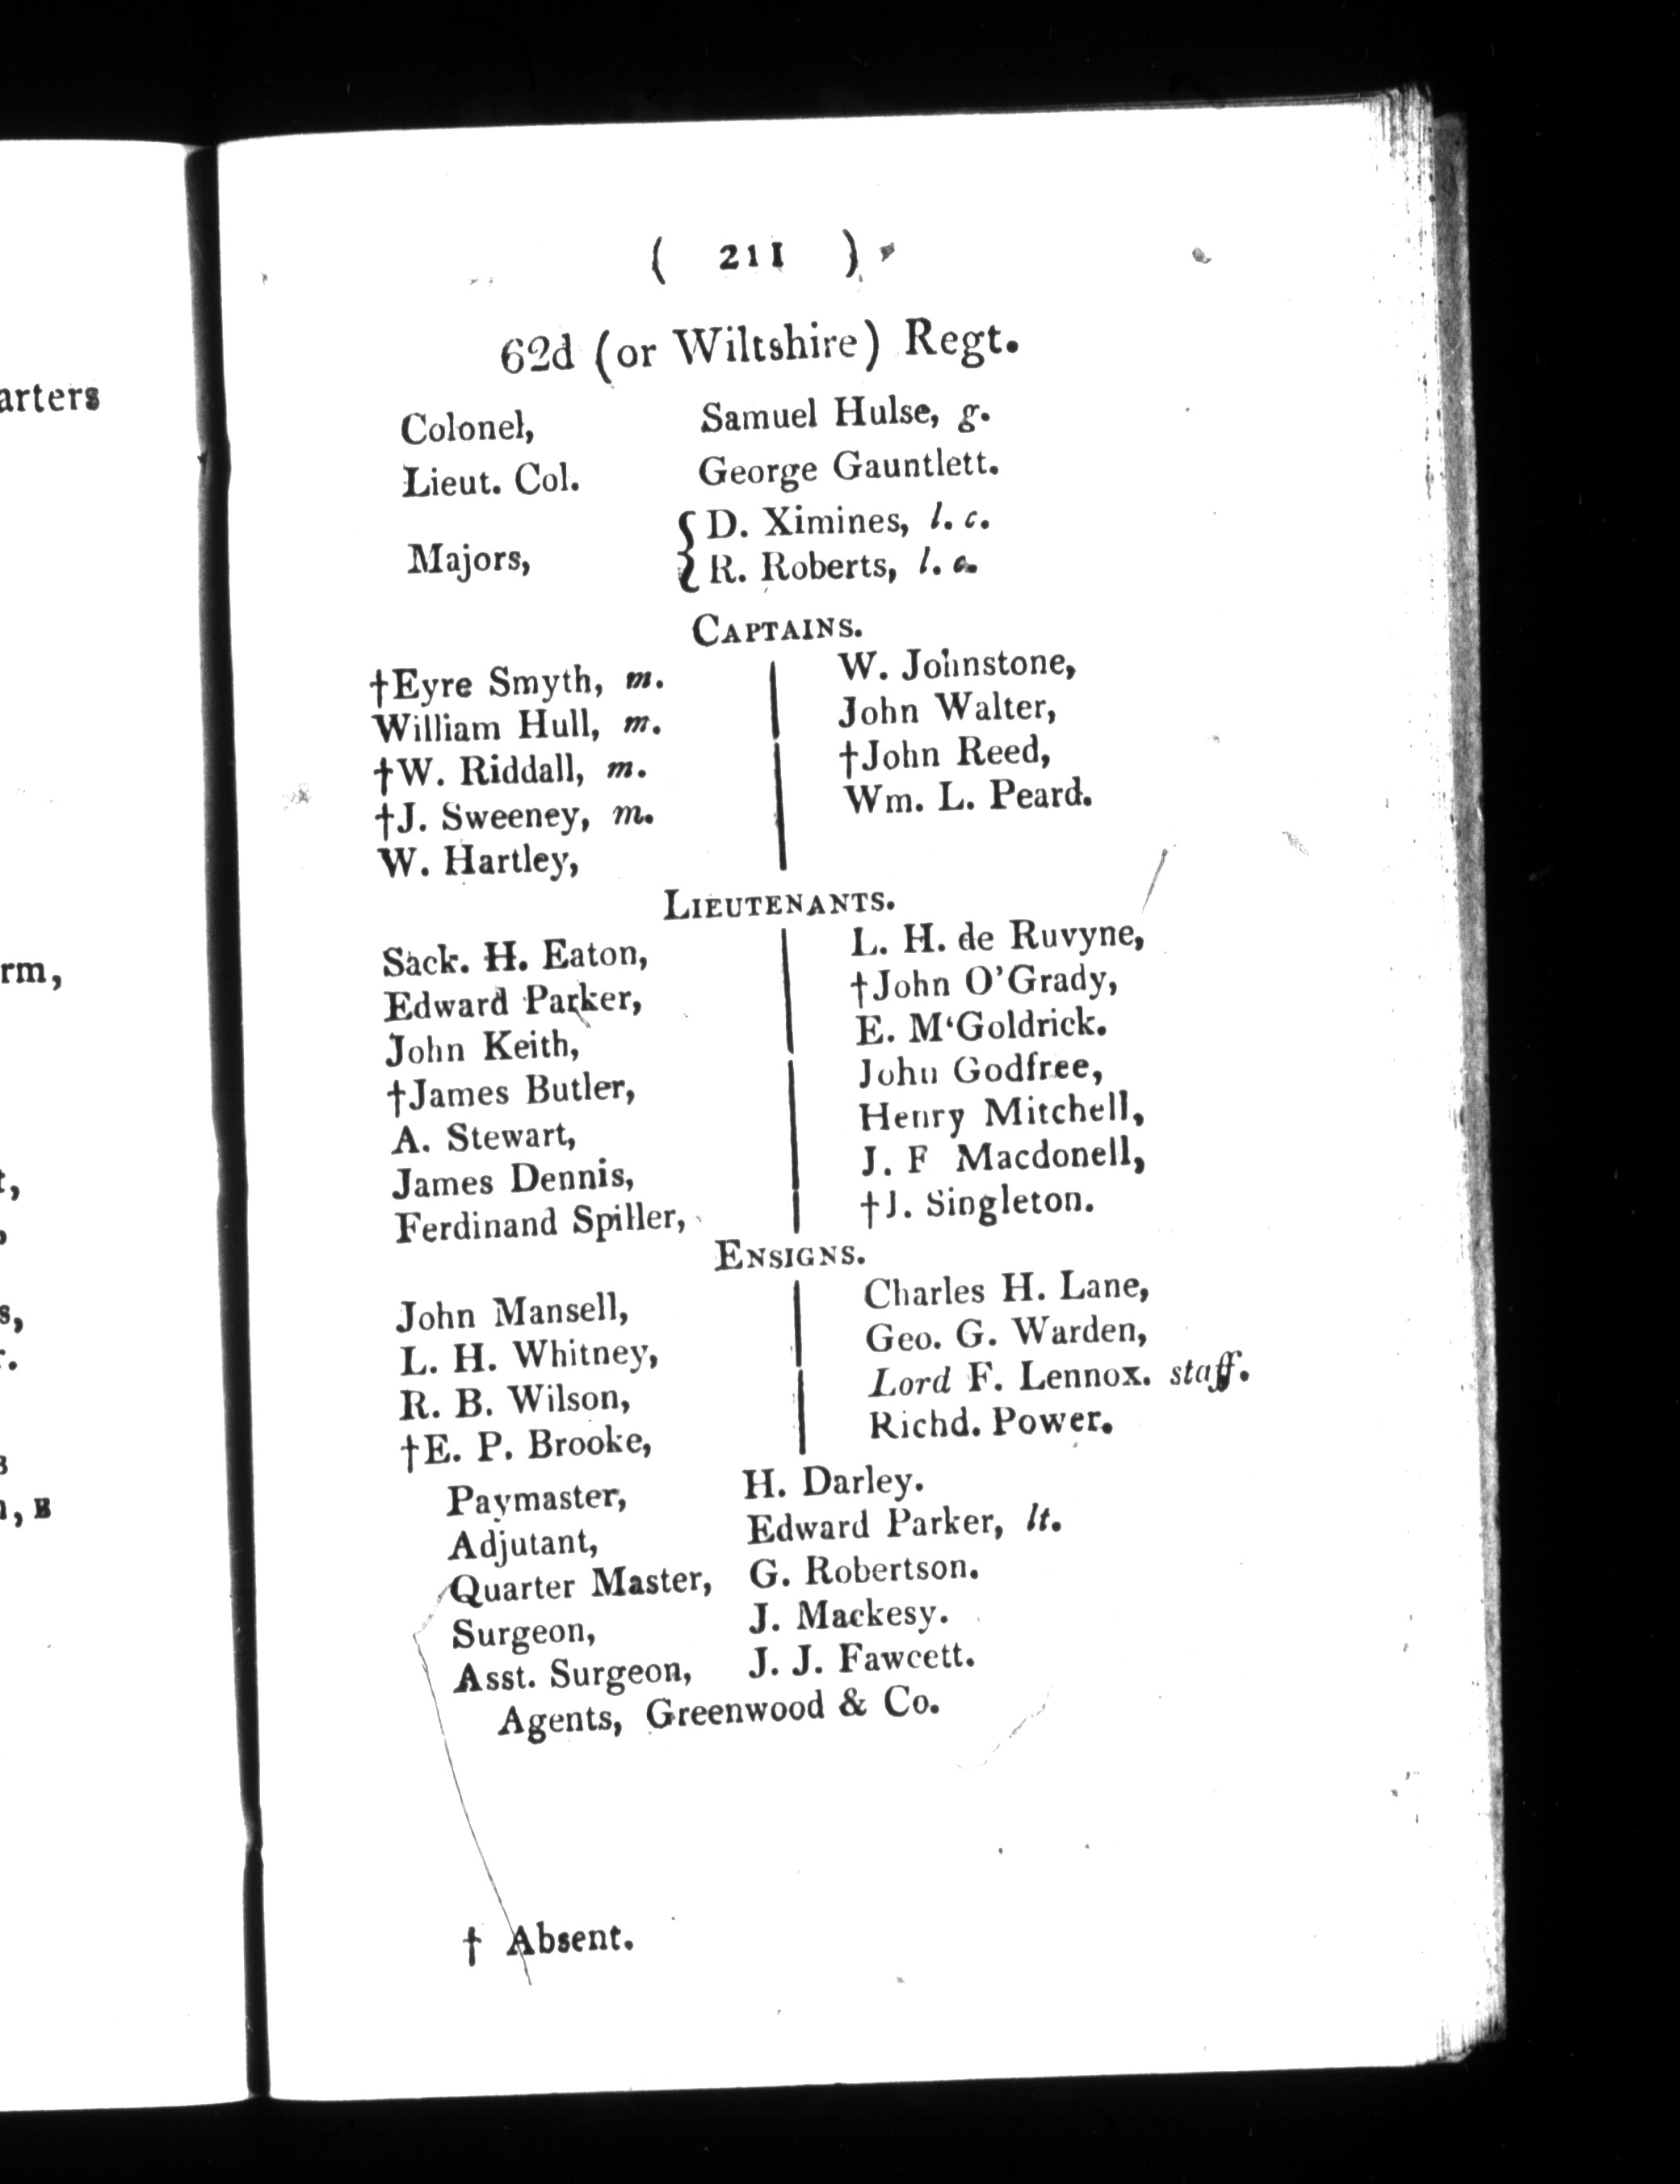 ( 211 )
62d (or Wiltshire) Regt.
Colonel, Samuel Hulse, g.
Lieut. Col. George Gauntlett.
Majors, { D. Ximines, l. c.
R. Roberts, l. c.
CAPTAINS.
†Eyre Smyth, m.
William Hull, m.
†W. Riddall, m.
†J. Sweeney, m.
W. Hartley,
W. Johnstone,
John Walter,
†John Reed,
Wm. L. Peard.
LIEUTENANTS.
Sack. H. Eaton,
Edward Parker,
John Keith,
†James Butler,
A. Stewart,
James Dennis,
Ferdinand Spiller,
L. H. de Ruvyne,
†John O'Grady,
E. M‘Goldrick.
John Godfree,
Henry Mitchell,
J. F Macdonell,
†J. Singleton.
ENSIGNS.
John Mansell,
L. H. Whitney,
R. B. Wilson,
†E. P. Brooke,
Charles H. Lane,
Geo. G. Warden,
Lord F. Lennox. staff.
Richd. Power.
Paymaster, H. Darley.
Adjutant, Edward Parker, lt.
Quarter Master, G. Robertson.
Surgeon, J. Mackesy.
Asst. Surgeon, J. J. Fawcett.
Agents, Greenwood & Co.
† Absent.